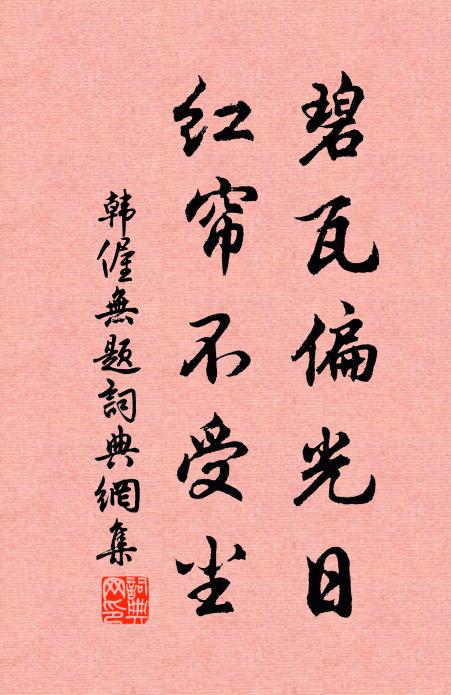 碧瓦偏光日
红帘不受尘
韩偓無题詞典網集
詞典网印